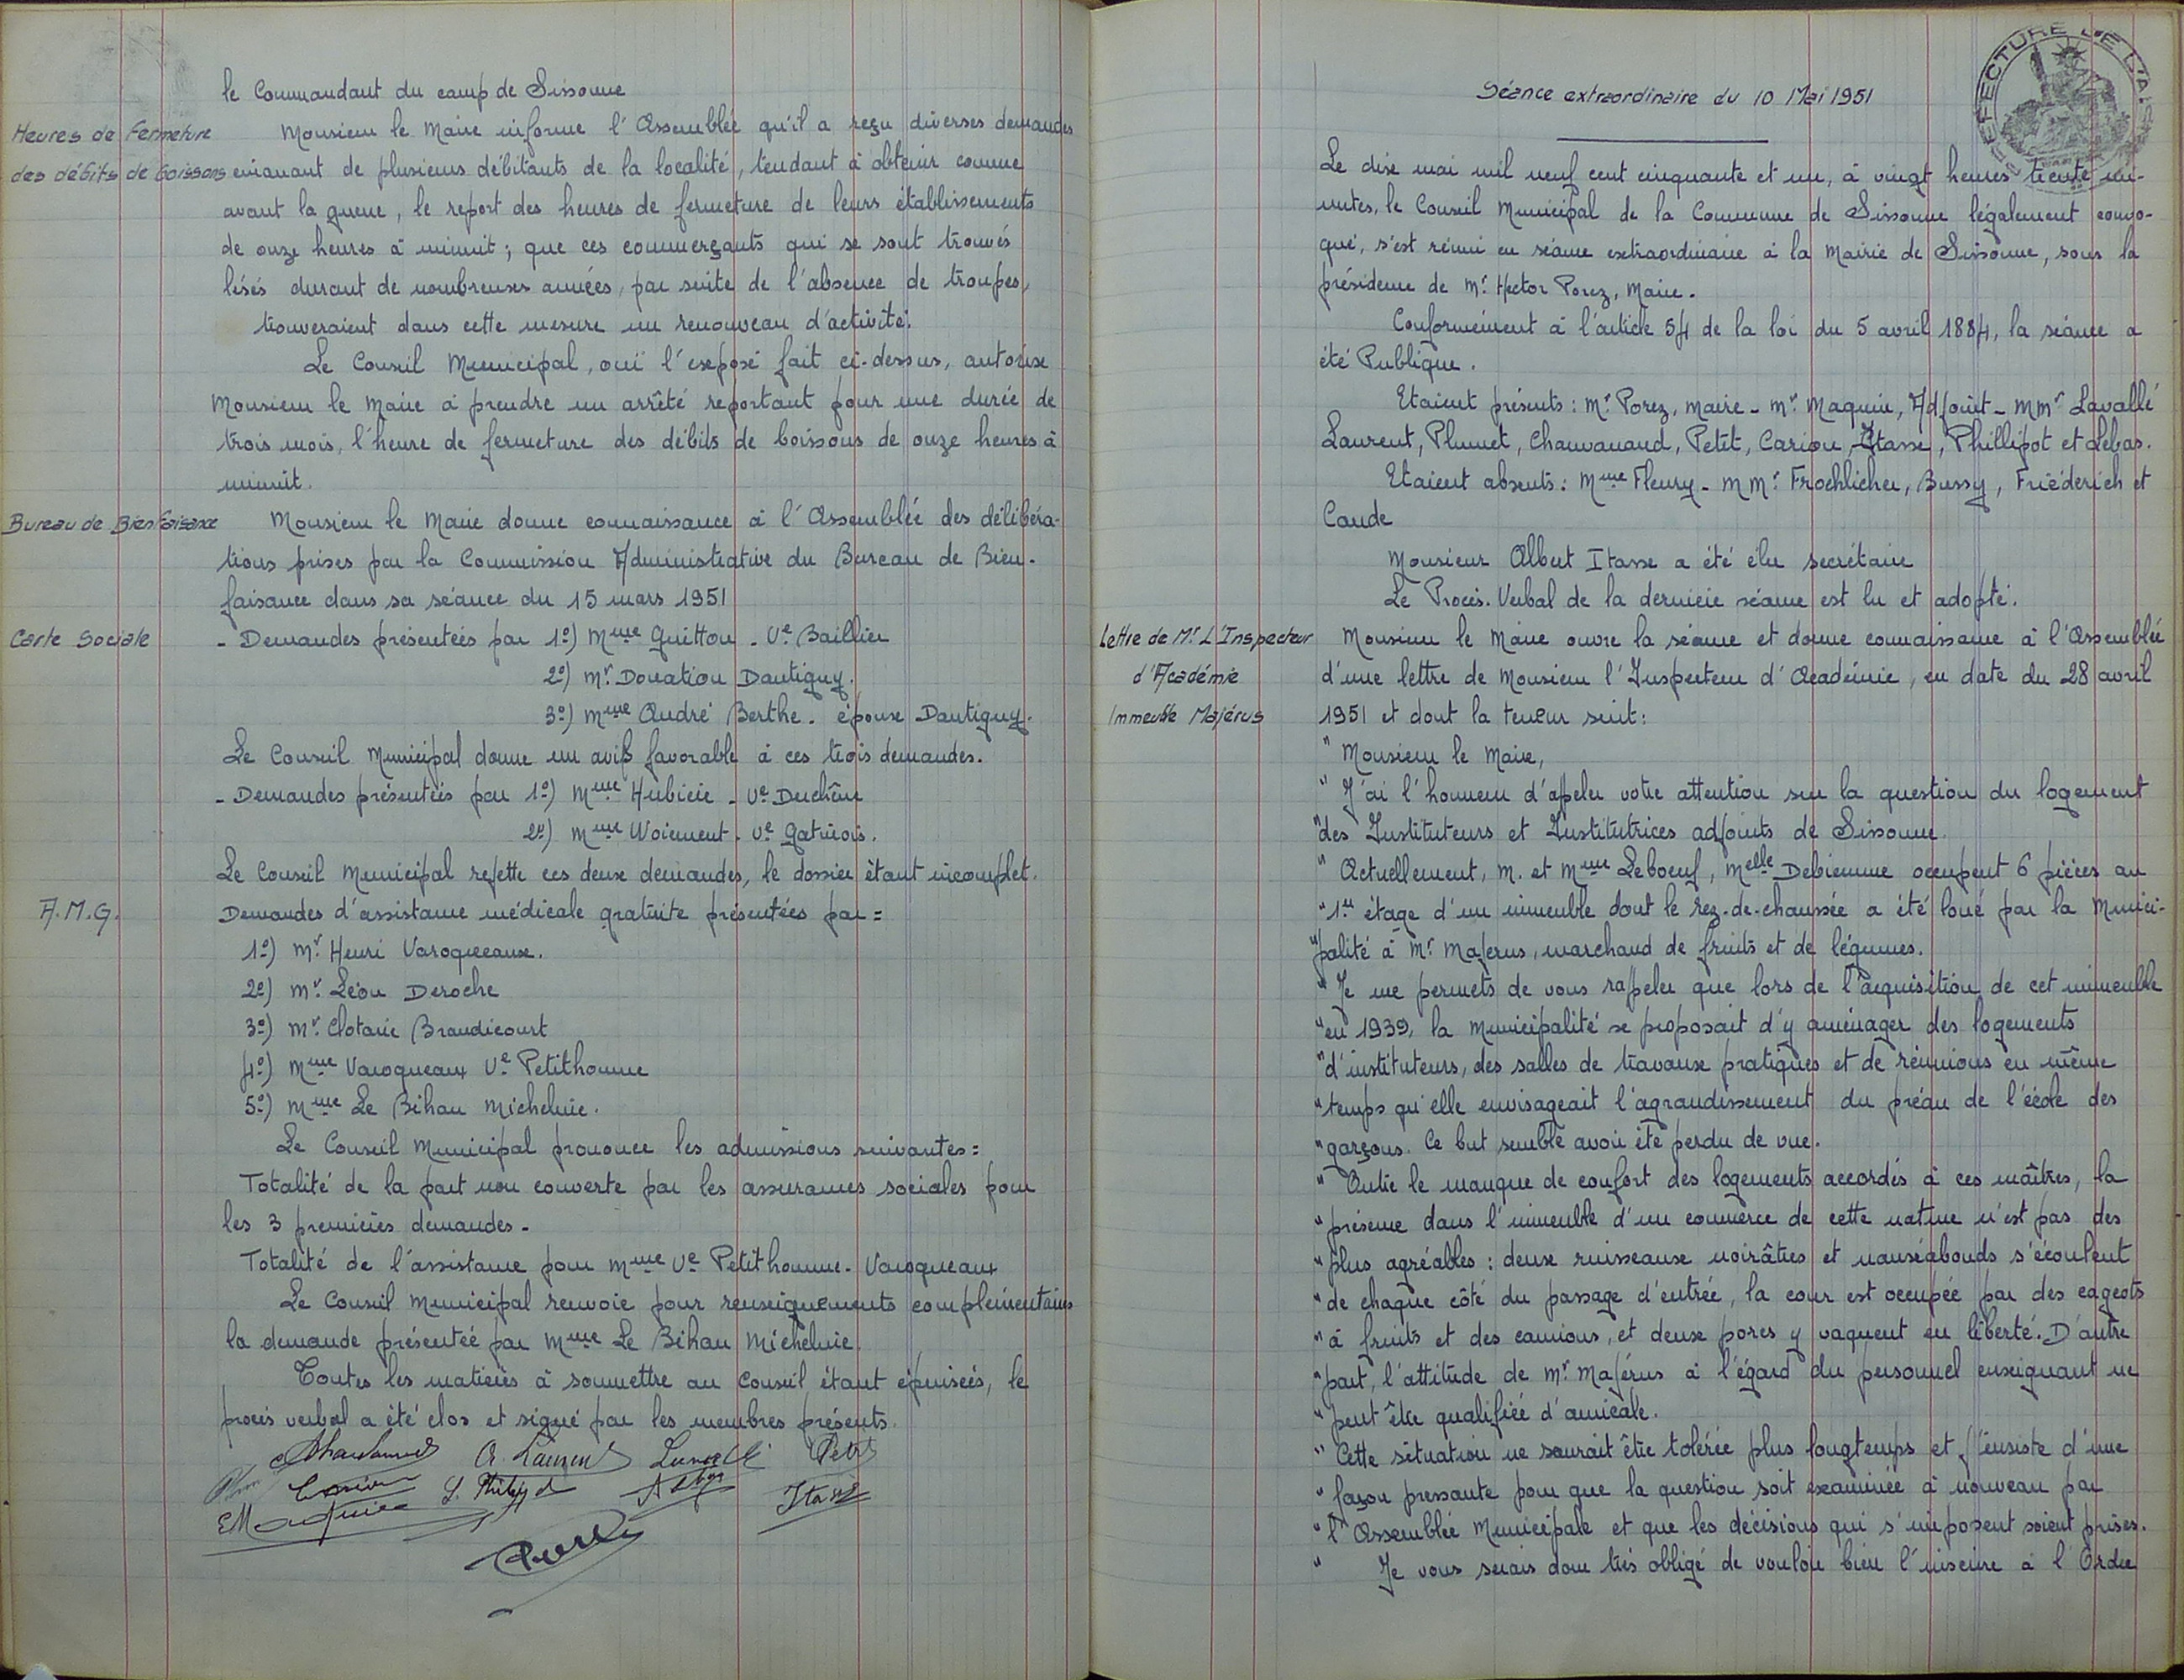 le Commandant du camp de Sissonne
Heures de Fermeture
des débits de boissons
Monsieur le Maire informe l'Assemblée qu'il a reçu diverses demandes
émanant de plusieurs débitants de la localité, tendant à obtenir comme
avant la guerre, le report des heures de fermeture de leurs établissements
de onze heures à minuit ; que ces commerçants qui se sont trouvés
lésés durant de nombreuses années, par suite de l'absence de troupes,
trouveraient dans cette mesure un renouveau d'activité.
Le Conseil Municipal, ouï l'exposé fait ci-dessus, autorise
Monsieur le Maire à prendre un arrêté reportant pour une durée de
trois mois, l'heure de fermeture des débits de boissons de onze heures à
minuit.
Bureau de Bienfaisance
Monsieur le Maire donne connaissance à l'Assemblée des délibéra-
tions prises par la Commission Administrative du Bureau de Bien-
faisance dans sa séance du 15 mars 1951
Carte Sociale
- Demandes présentées par 1°) Mme Guitton - Ve Baillier
2°) Mr. Donation Dautigny.
3°) Mme André Berthe. épouse Dautigny.
Le Conseil Municipal donne un avis favorable à ces trois demandes.
- Demandes présentées par 1°) Mme Hubière - Ve Duchêne
2°) Mme Woiement. Ve Gatinois.
Le Conseil Municipal rejette ces deux demandes, le dossier étant incomplet.
A.M.G.
Demandes d'assistance médicale gratuite présentées par =
1°) Mr. Henri Varoqueaux.
2°) Mr. Léon Deroche
3°) Mr. Clotaire Brandicourt
4°) Mme Varoqueaux Ve Petithomme
5°) Mme Le Bihan Micheline.
Le Conseil Municipal prononce les admissions suivantes =
Totalité de la part non couverte par les assurances sociales pour
les 3 premières demandes -
Totalité de l'assistance pour Mme Ve Petithomme - Varoqueaux
Le Conseil Municipal renvoie pour renseignements complémentaires
la demande présentée par Mme Le Bihan Micheline.
Toutes les matières à soumettre au Conseil étant épuisées, le
procès verbal a été clos et signé par les membres présents.
A. Laurent Petit
Carion Itasse
EMaquin
Porez
Séance extraordinaire du 10 Mai 1951
PREFECTURE DE L'AISNE
Le dix mai mil neuf cent cinquante et un, à vingt heures trente mi-
nutes, le Conseil Municipal de la Commune de Sissonne légalement convo-
qué, s'est réuni en séance extraordinaire à la Mairie de Sissonne, sous la
présidence de Mr. Hector Porez, Maire.
Conformément à l'article 54 de la loi du 5 avril 1884, la séance a
été Publique.
Etaient présents : Mr. Porez, maire - Mr. Maquin, Adjoint - MMrs Lavallé
Laurent, Plumet, Chauvauaud, Petit, Cariou, Itasse, Phillipot et Lebas.
Etaient absents : Mme Fleury - MMr. Frochlicher, Bussy, Friéderich et
Caude
Monsieur Albert Itasse a été élu secrétaire
Le Procès-Verbal de la dernière séance est lu et adopté.
Lettre de Mr L'Inspecteur
d'Académie
Immeuble Majérus
Monsieur le Maire ouvre la séance et donne connaissance à l'Assemblée
d'une lettre de Monsieur l'Inspecteur d'Académie, en date du 28 avril
1951 et dont la teneur suit :
" Monsieur le Maire,
" J'ai l'honneur d'apeler votre attention sur la question du logement
" des Instituteurs et Institutrices adjoints de Sissonne.
" Actuellement, M. et Mme Leboeuf, Melle Debienne occupent 6 pièces au
" 1er étage d'un immeuble dont le rez-de-chaussée a été loué par la Munici-
" palité à Mr. Majerus, marchand de fruits et de légumes.
" Je me permets de vous rappeler que lors de l'acquisition de cet immeuble
" en 1939, la Municipalité se proposait d'y aménager des logements
" d'instituteurs, des salles de travaux pratiques et de réunions en même
" temps qu'elle envisageait l'agrandissement du préau de l'école des
" garçons. Ce but semble avoir été perdu de vue.
" Outre le manque de confort des logements accordés à ces maîtres, la
" présence dans l'immeuble d'un commerce de cette nature n'est pas des
" plus agréables : deux ruisseaux noirâtres et nauséabonds s'écoulent
" de chaque côté du passage d'entrée, la cour est occupée par des cageots
" à fruits et des camions, et deux porcs y vaquent en liberté. D'autre
" part, l'attitude de Mr. Majérus à l'égard du personnel enseignant ne
" peut être qualifiée d'amicale.
" Cette situation ne saurait être tolérée plus longtemps et j'insiste d'une
" façon pressante pour que la question soit examinée à nouveau par
" l'Assemblée Municipale et que les décisions qui s'imposent soient prises.
" Je vous serais donc très obligé de vouloir bien l'inscrire à l'Ordre